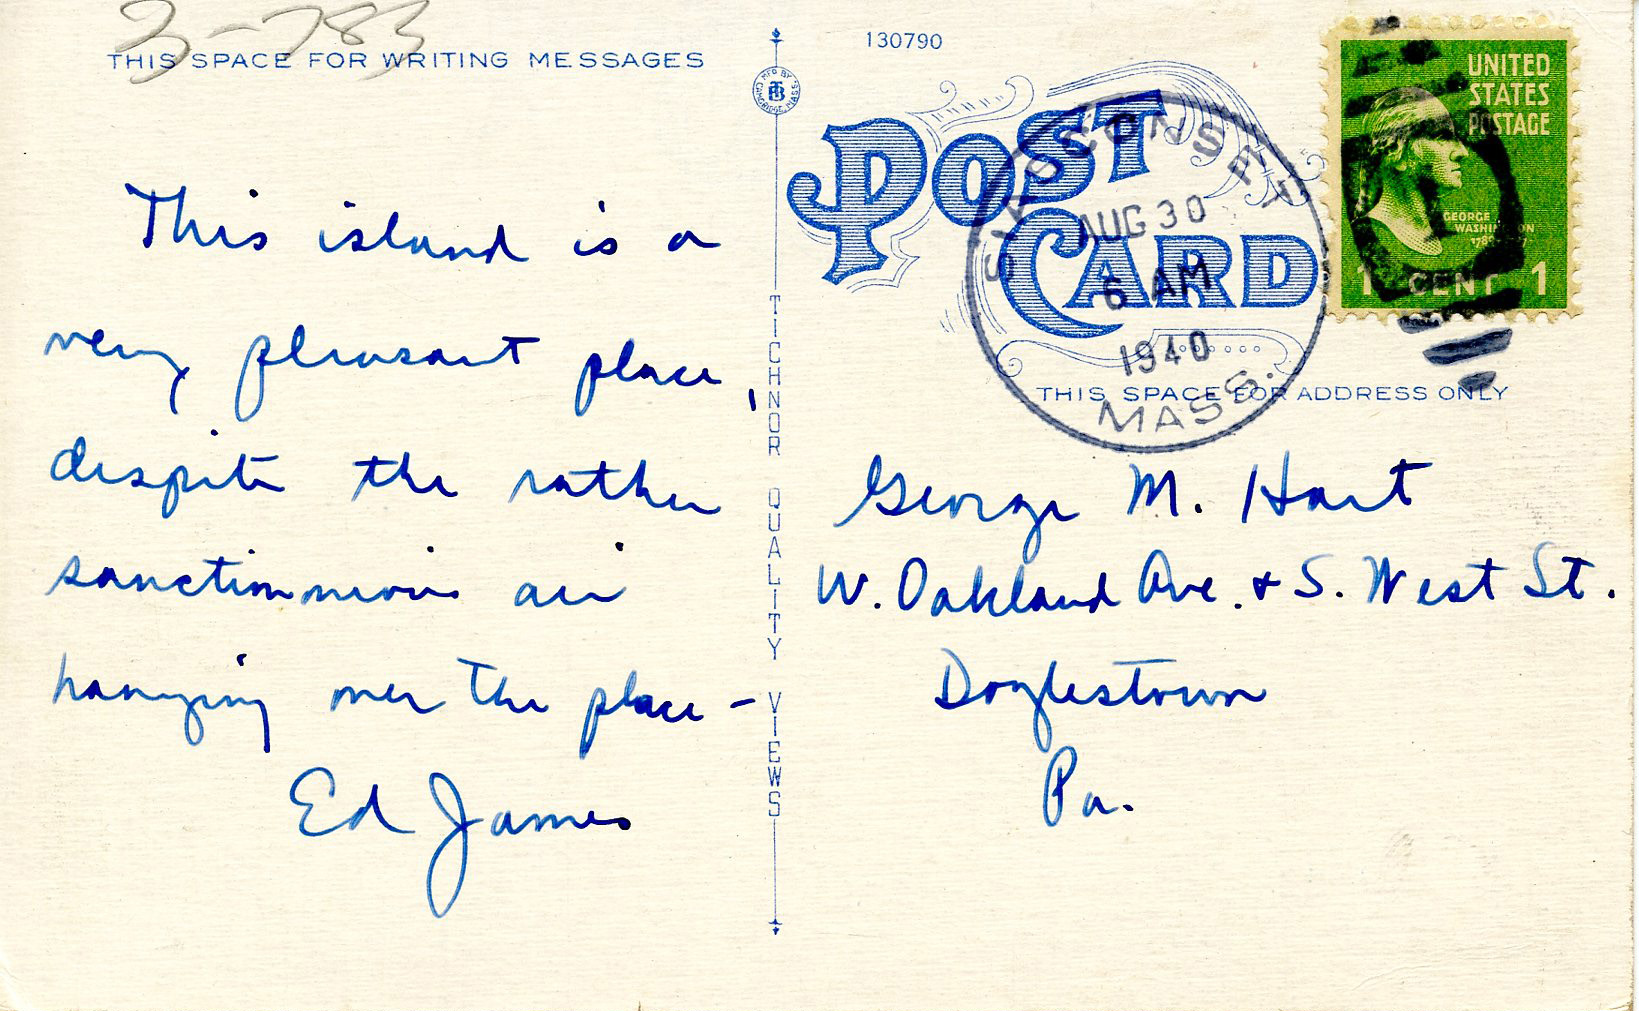 3-783
THIS SPACE FOR WRITING MESSAGES
This island is a
very pleasant place,
despite the rather
sanctimonious air
hanging over the place –
Ed James
MFD BY
TB
CAMBRIDGE, MASS.
TICHNOR QUALITY VIEWS
130790
POST
CARD
SIASCONSET
AUG 30
6 AM
1940
MASS.
UNITED
STATES
POSTAGE
GEORGE
WASHINGTON
1 CENT 1
THIS SPACE FOR ADDRESS ONLY
George M. Hart
W. Oakland Ave. & S. West St.
Doylestown
Pa.